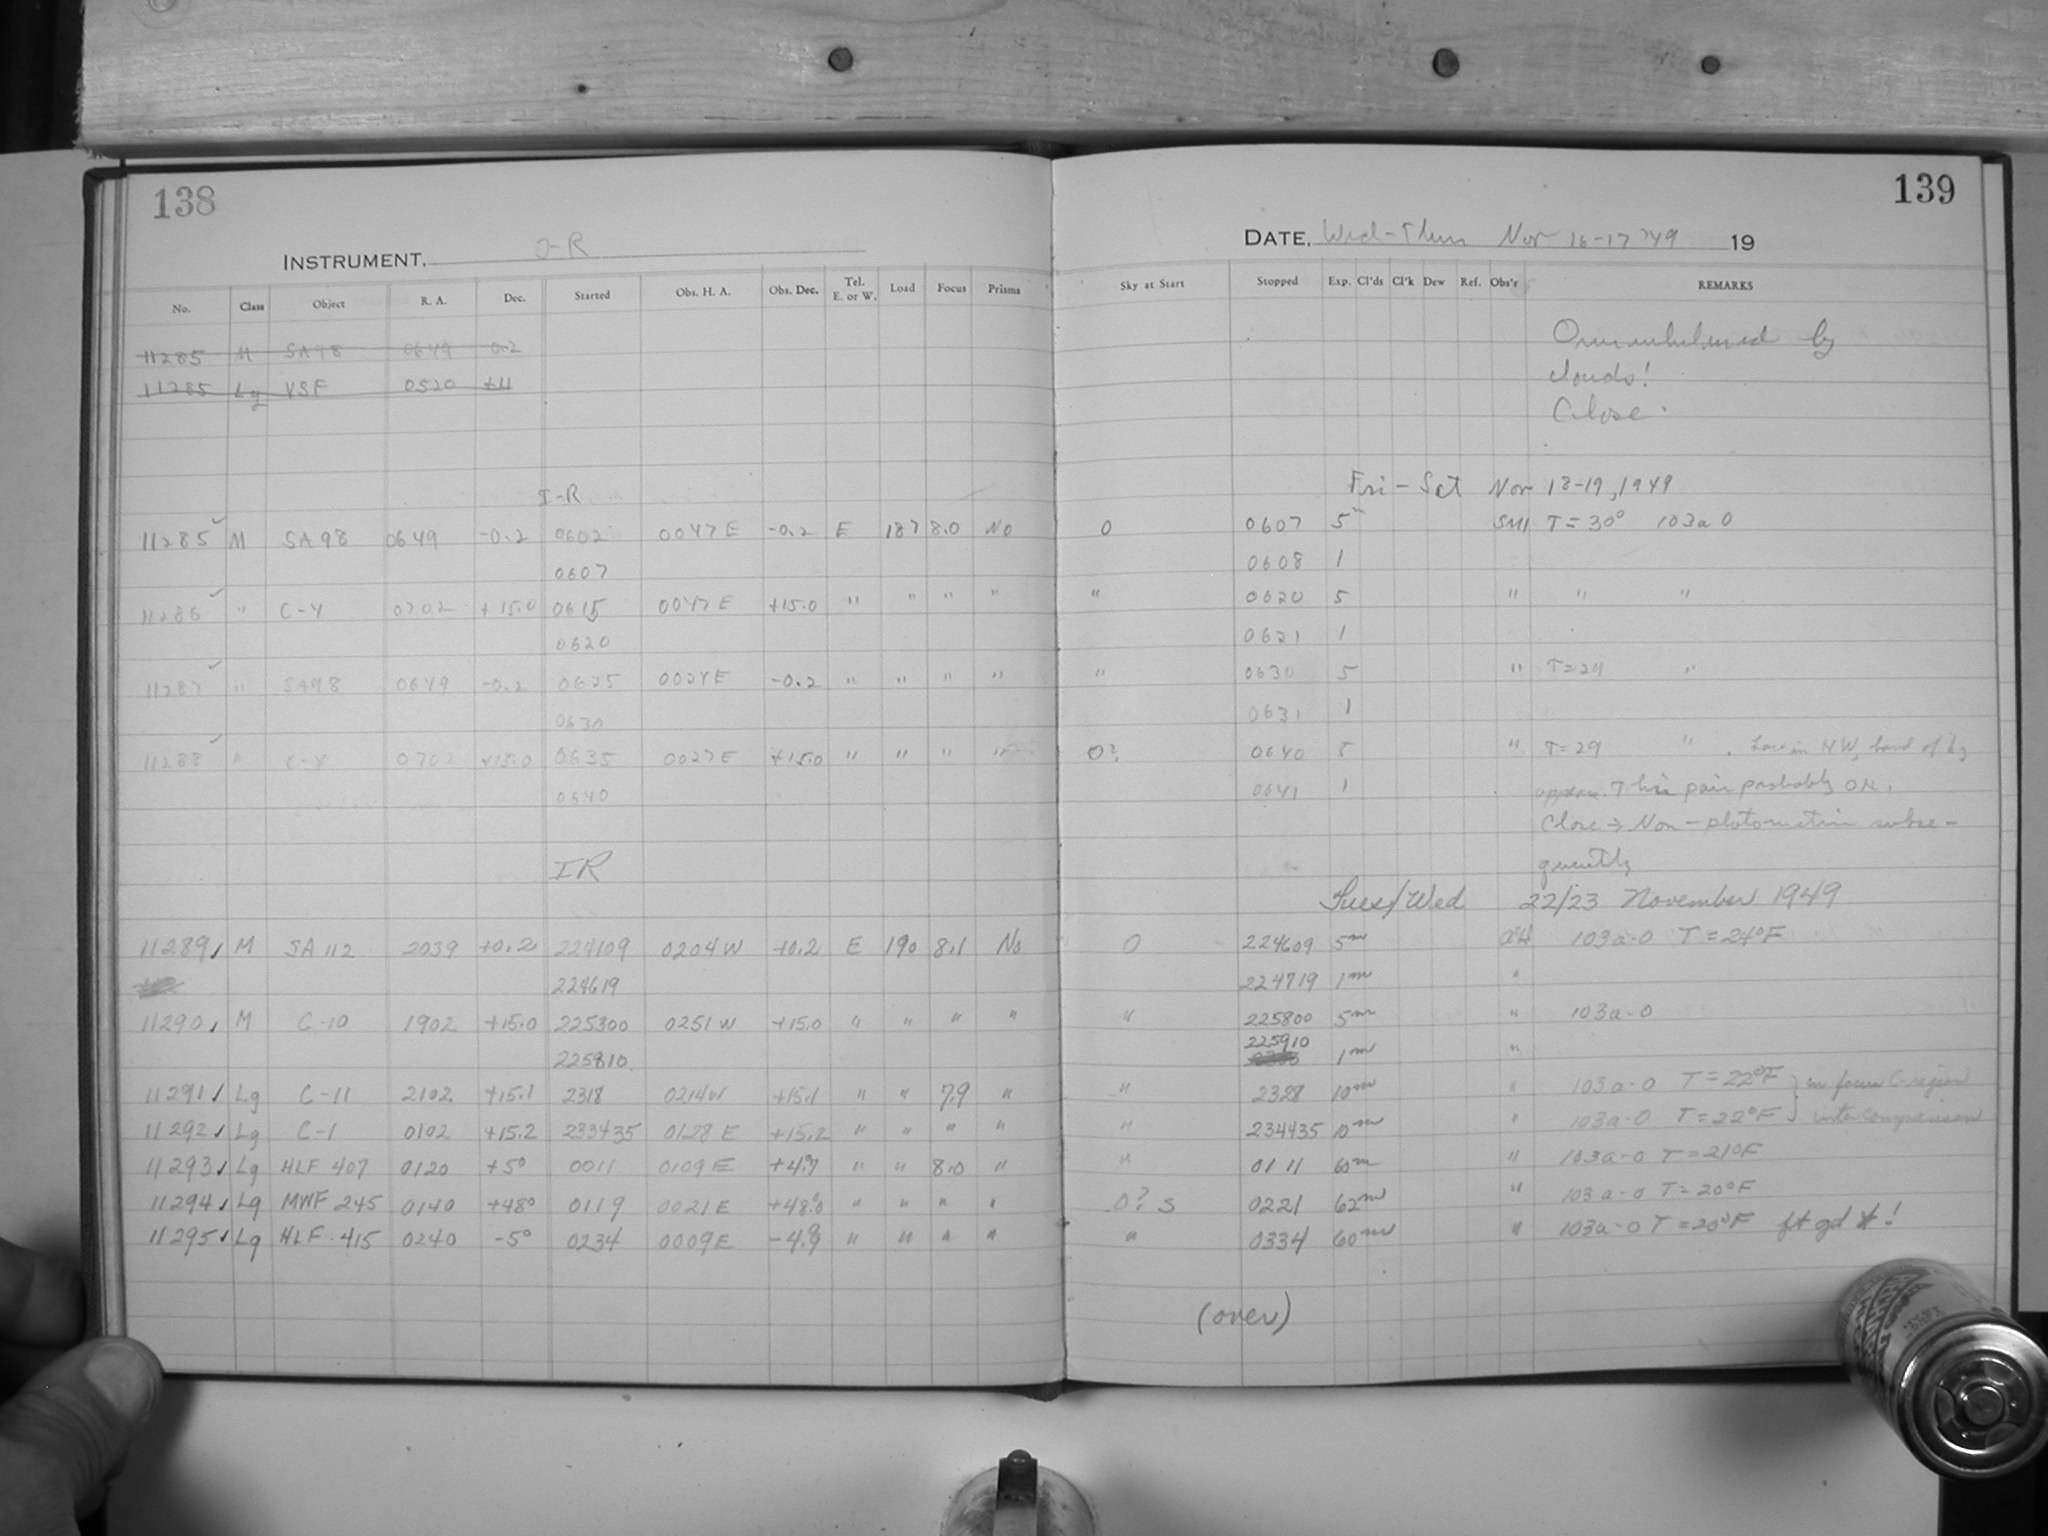 138
139
INSTRUMENT, J-R
DATE, Wed-Thurs Nov 16-17 '49 19
No. Class Object R. A. Dec. Started Obs. H. A. Obs. Dec. Tel. E. or W. Load Focus Prisms Sky at Start Stopped Exp. Cl'ds Cl'k Dew Ref. Obs'r REMARKS
11285 M SA98 0649 -0.2 Overwhelmed by
11285 Lg VSF 0520 +4 clouds!
Close.
I-R Fri-Sat Nov 18-19, 1949
11285 M SA98 0649 -0.2 0602 0047E -0.2 E 187 8.0 No 0 0607 5m T=30° 103a0
0607 0608 1
11286 " C-4 0702 +15.0 0615 0047E +15.0 " " " " " 0620 5 " " "
0620 0621 1
11287 " SA98 0649 -0.2 0625 0024E -0.2 " " " " " 0630 5 " T=29 "
0630 0631 1
11288 " C-4 0702 +15.0 0635 0027E +15.0 " " " " 0? 0640 5 " T=29 " . Low in NW, band of
0640 0641 1 This pair probably OK.
Close → Non-photometric subse-
quently
IR
Tues/Wed 22/23 November 1949
11289 M SA 112 2039 +0.2 224109 0204W +0.2 E 190 8.1 No 0 224609 5m 103a-0 T=24°F
224619 224719 1m "
11290 M C-10 1902 +15.0 225300 0251W +15.0 " " " " " 225800 5m " 103a-0
225810 225910 1m "
11291 Lg C-11 2102 +15.1 2318 0214W +15.1 " " 7.9 " " 2328 10m " 103a-0 T=22°F } in focus C-region
11292 Lg C-1 0102 +15.2 233435 0128E +15.2 " " " " " 234435 10m " 103a-0 T=22°F } intercomparison
11293 Lg HLF 407 0120 +5° 0011 0109E +4.9 " " 8.0 " " 0111 60m " 103a-0 T=21°F
11294 Lg MWF 245 0140 +48° 0119 0021E +48.0 " " " " 0? S 0221 62m " 103a-0 T=20°F
11295 Lg HLF 415 0240 -5° 0234 0009E -4.9 " " " " " 0334 60m " 103a-0 T=20°F ft gd *!
(over)